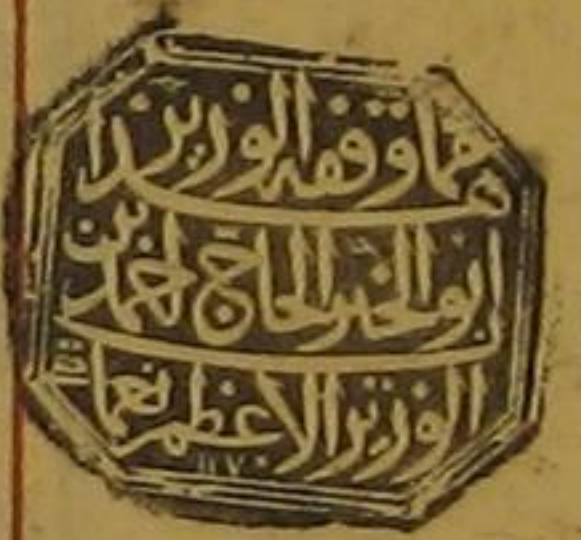 هذا مما وقفه الوزير
ابو الخير الحاج احمد بن
الوزير الاعظم نعمان
١١٧٠